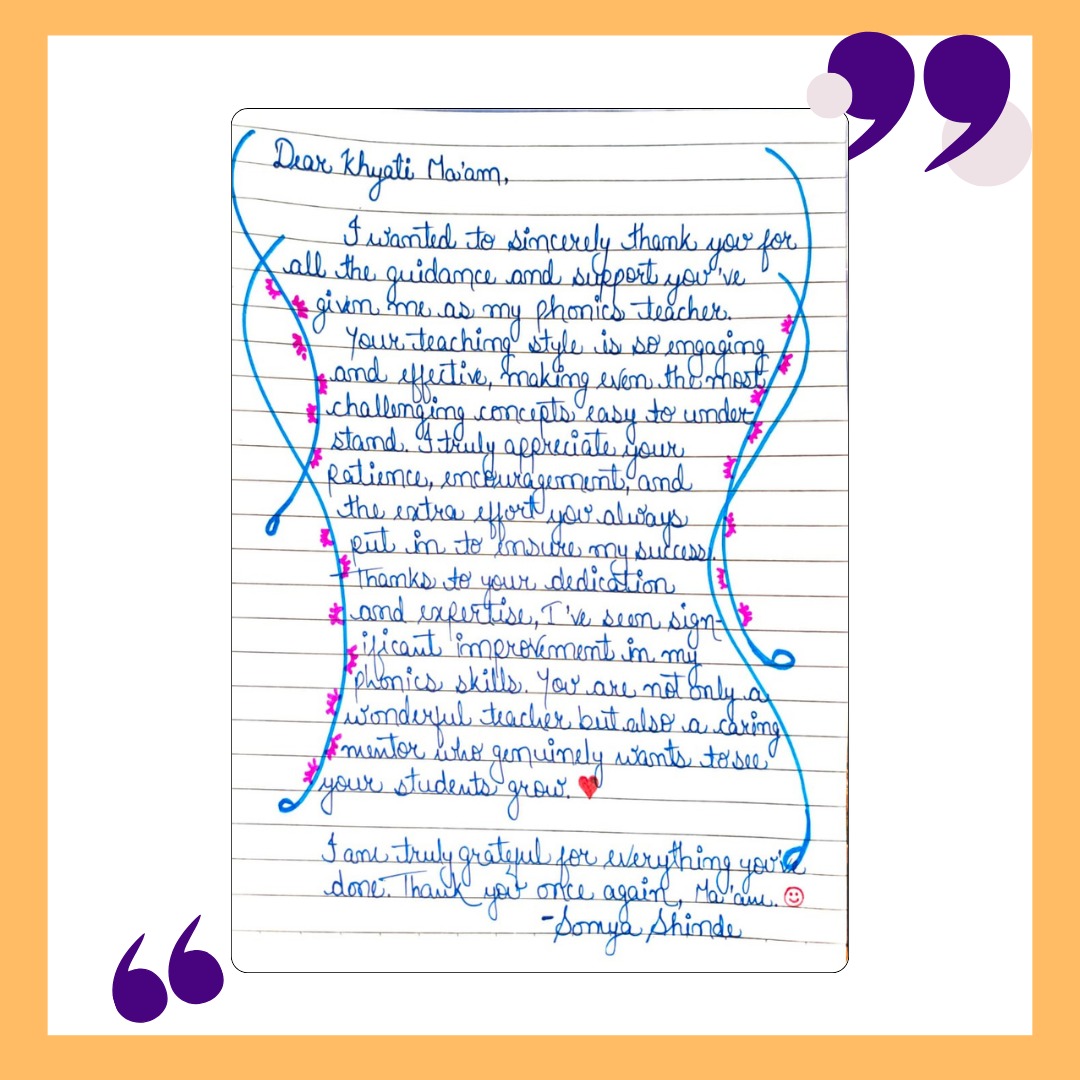 Dear Khyati Ma'am,
I wanted to sincerely thank you for
all the guidance and support you've
given me as my phonics teacher.
Your teaching style is so engaging
and effective, making even the most
challenging concepts easy to under-
stand. I truly appreciate your
patience, encouragement, and
the extra effort you always
put in to ensure my success.
Thanks to your dedication
and expertise, I've seen sign-
ificant improvement in my
phonics skills. You are not only a
wonderful teacher but also a caring
mentor who genuinely wants to see
your students grow.
I am truly grateful for everything you've
done. Thank you once again, Ma'am.
-Somya Shinde